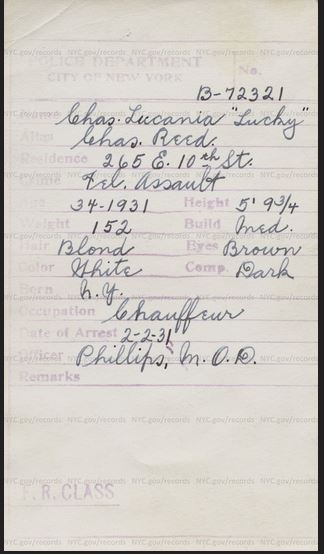 POLICE DEPARTMENT
CITY OF NEW YORK
No.
B-72321
Name Chas. Lucania "Lucky"
Alias Chas. Reed.
Residence 265 E. 10th St.
Crime Fel. Assault
Age 34-1931 Height 5' 9 3/4
Weight 152 Build Med.
Hair Blond Eyes Brown
Color White Comp. Dark
Born N.Y.
Occupation Chauffeur
Date of Arrest 2-2-31
Officer Phillips, M.O.D.
Remarks
F. R. CLASS
NYC.gov/records NYC.gov/records NYC.gov/records NYC.gov/records